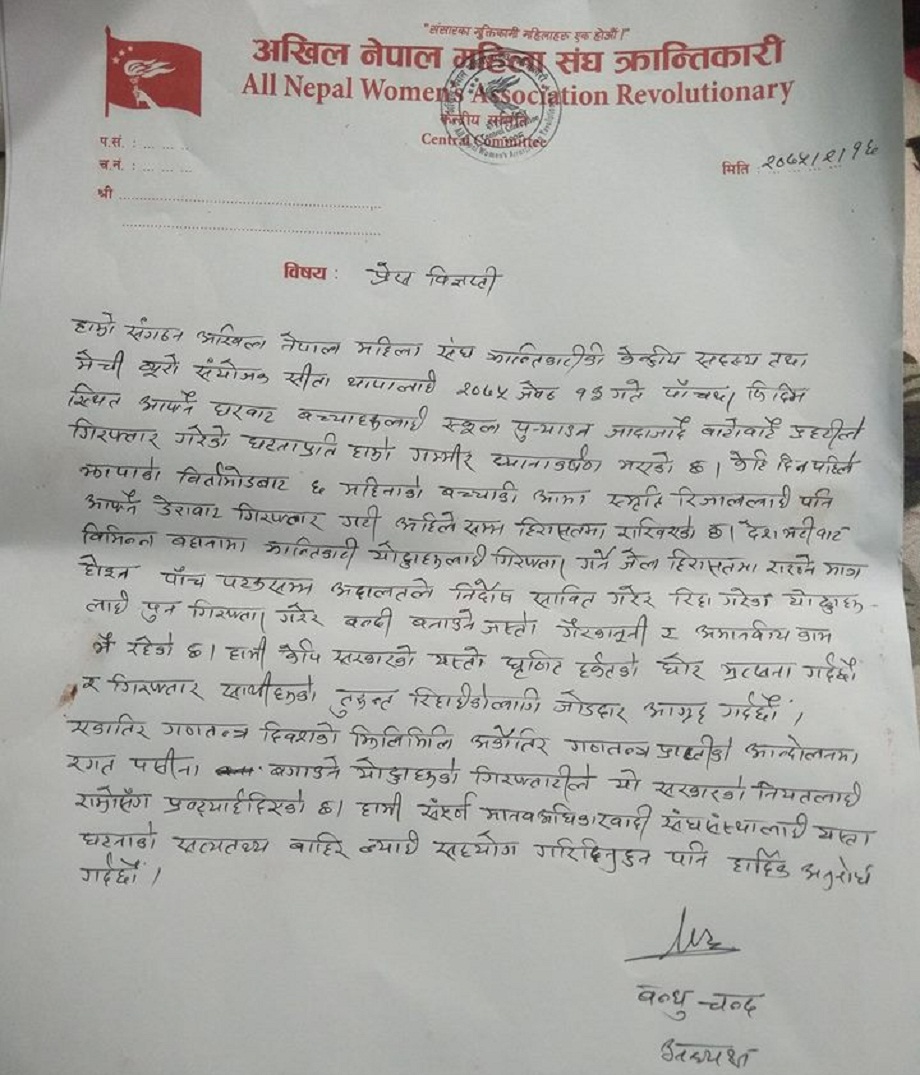 "संसारका मुक्तिकामी महिलाहरु एक होऔं!"
अखिल नेपाल महिला संघ क्रान्तिकारी
All Nepal Women's Association Revolutionary
केन्द्रीय समिति
Central Committee
प.सं. :
च.नं. :
मिति २०७५/२/१६
श्री
विषय : प्रेस विज्ञप्ती
हाम्रो संगठन अखिल नेपाल महिला संघ क्रान्तिकारीकी केन्द्रीय सदस्य तथा
मेची ब्यूरो संयोजक सीता थापालाई २०७५ जेठ १३ गते पाँचथर फिदिम
स्थित आफ्नै घरबाट बच्चाहरुलाई स्कूल पुर्‍याउन जादाजादै बाटोबाटै प्रहरीले
गिरफ्तार गरेको घटनाप्रति हाम्रो गम्भीर ध्यानाकर्षण भएको छ। केहि दिन पहिले
झापाको विर्तामोडबाट ६ महिनाको बच्चाकी आमा स्मृति रिजाललाई पनि
आफ्नै डेराबाट गिरफ्तार गरी अहिले सम्म हिरासतमा राखिएको छ। देश भरीबाट
विभिन्न बहानामा क्रान्तिकारी योद्धाहरुलाई गिरफ्तार गर्ने जेल हिरासतमा राख्ने मात्र
होइन पाँच पटकसम्म अदालतले निर्दोष सावित गरेर रिहा गरेका योद्धाहरु-
लाई पुन गिरफ्तार गरेर बन्दी बनाउने जस्ता गैरकानूनी र अमानवीय काम
भै रहेको छ। हामी केपि सरकारको यस्तो घृणित हर्कतको घोर भर्त्सना गर्दछौं
र गिरफ्तार साथीहरुको तुरुन्त रिहाईकोलागि जोडदार आग्रह गर्दछौं।
एकातिर गणतन्त्र दिवसको झिलिमिलि अर्कोतिर गणतन्त्र प्राप्तीको आन्दोलनमा
रगत पसीना बगाउने योद्धाहरुको गिरफ्तारीले यो सरकारको नियतलाई
राम्रोसँग प्रष्ट्याईदिएको छ। हामी संपूर्ण मानवअधिकारवादी संघसंस्थालाई यस्ता
घटनाको सत्यतथ्य बाहिर ल्याई सहयोग गरिदिनुहुन पनि हार्दिक अनुरोध
गर्दछौं।
बन्धु चन्द
अध्यक्ष